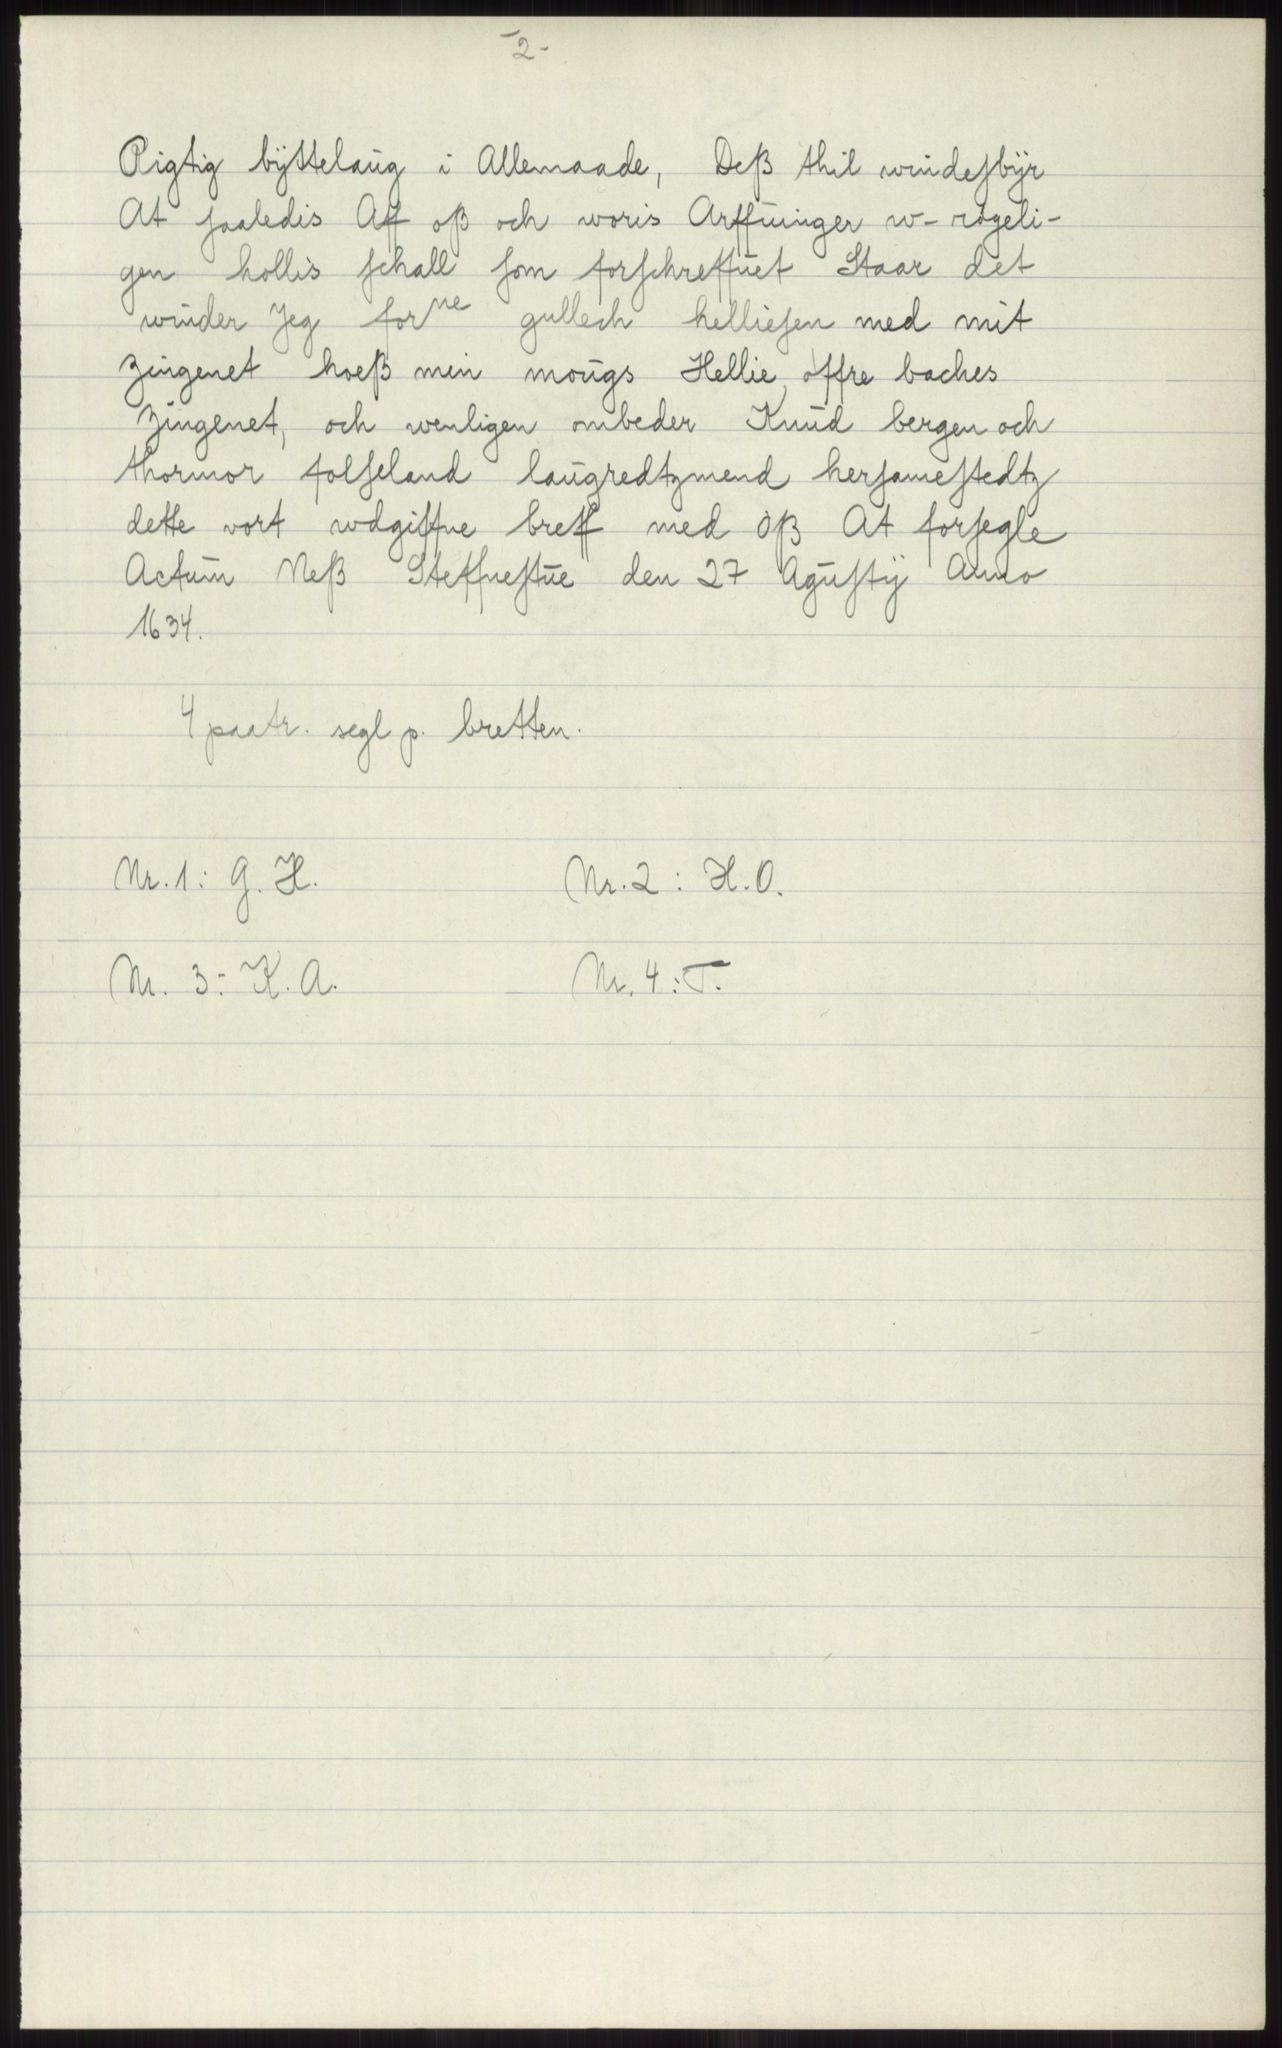 -2-
Rigtig bÿttelaug i Allemaade, Deß thil windesbÿr
At saaledis Aff oß och woris Arffuinger w-rÿgeli-
gen hollis schall som forschreffuet Staar det
winder Jeg forne gullech helliesen med mit
Zingenet hoeß min mougs Hellie offre baches
Zingenet, och wenligen ombeder Knud bergen och
thormor folseland laugredtzmend hersamestedtz
dette vort wdgiffne breff med oß At forsegle
Actum Neß Steffnestue den 27 Agustÿ Anno
1634.
4 paatr. segl p. bretten.
Nr. 1: G. H. Nr. 2: H. O.
Nr. 3: K. A. Nr. 4: T.